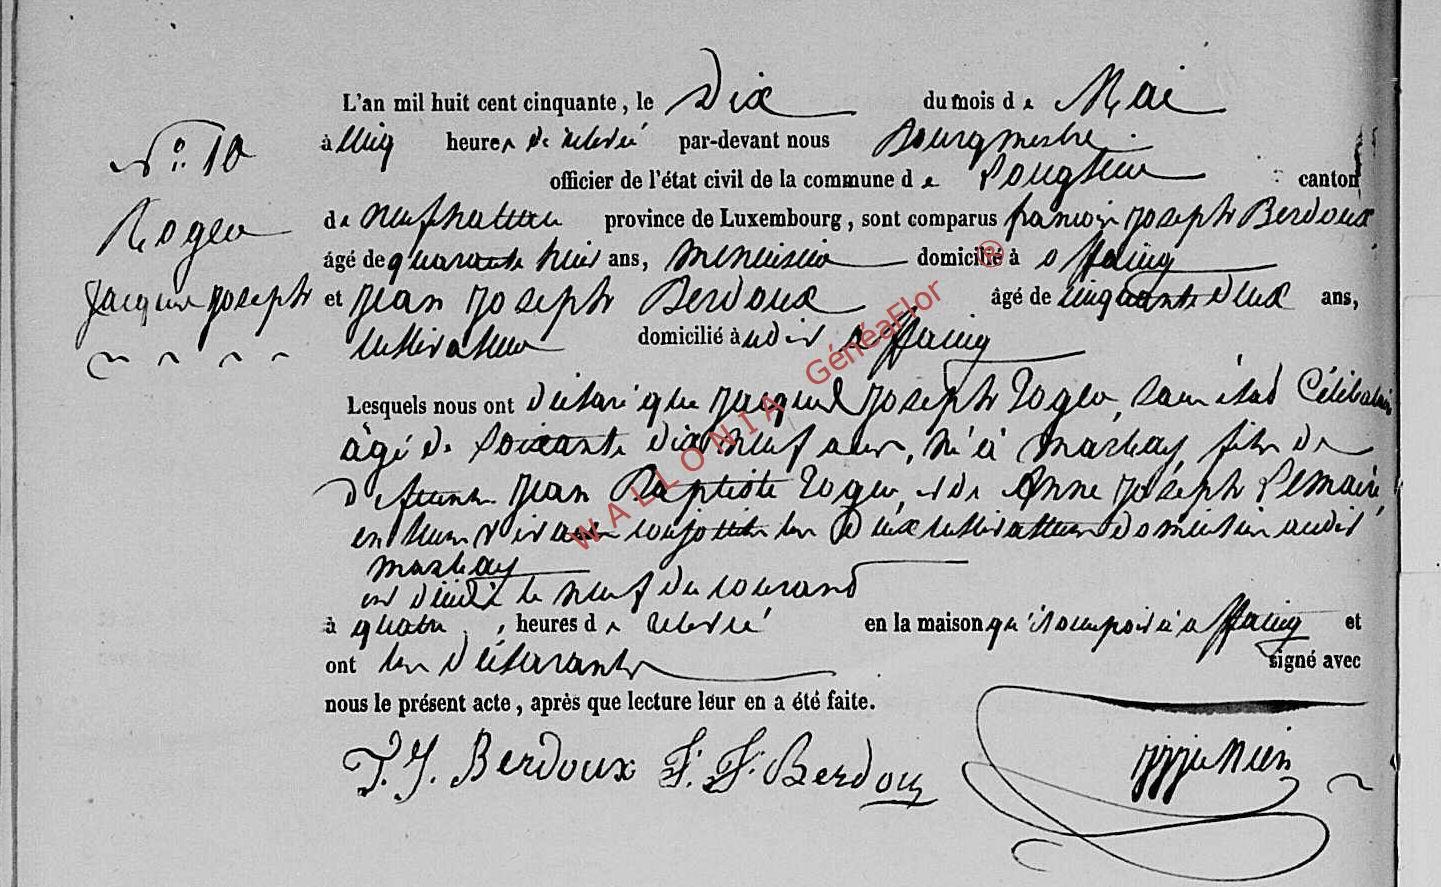 L'an mil huit cent cinquante, le Dix du mois de Mai
N°: 10
à cinq heures de relevé par-devant nous Bourgmestre
officier de l'état civil de la commune de Longlier canton
Roger
de neufchateau province de Luxembourg, sont comparus francois joseph Berdoux
âgé de quarante huit ans, menuisier domicilié à offaing
Jacques joseph
et jean joseph Berdoux âgé de cinquante deux ans,
cultivateur domicilié à udit offaing
WALLONIA GénéaFlor ®
Lesquels nous ont déclaré que jacques joseph roger, sans état Célibataire
âgé de soixante dix neuf ans, né à Marbay fils de
defunt jean Baptiste roger, et de Anne joseph Lemaire
en leur vivant conjoints tous deux cultivateurs domiciliés audit
Marbay
est décédé le neuf du courant
à quatre, heures de relevé en la maison qu'il occupoit à offaing et
ont les déclarants signé avec
nous le présent acte, après que lecture leur en a été faite.
J. J. Berdoux F. J. Berdoux